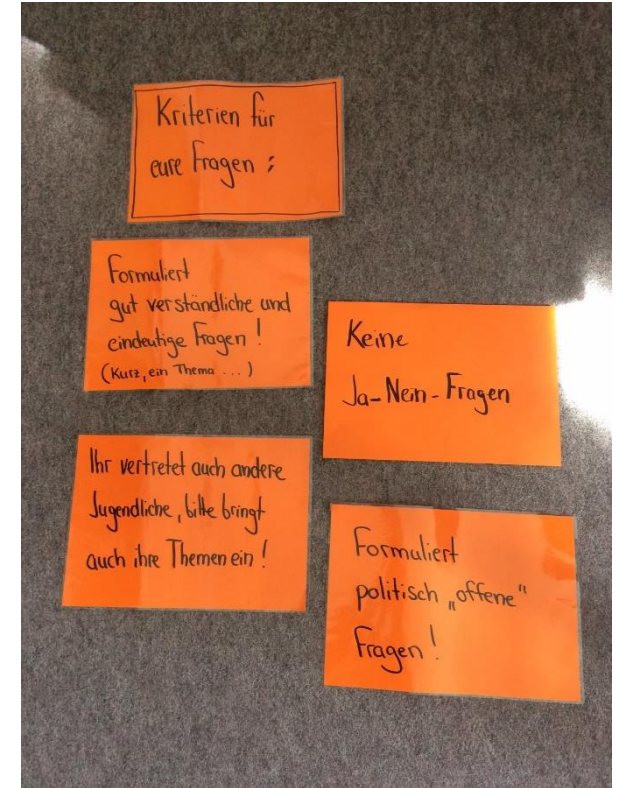 Kriterien für
eure Fragen :
Formuliert
gut verständliche und
eindeutige Fragen !
(Kurz, ein Thema ...)
Keine
Ja-Nein-Fragen
Ihr vertretet auch andere
Jugendliche, bitte bringt
auch ihre Themen ein !
Formuliert
politisch „offene“
Fragen !